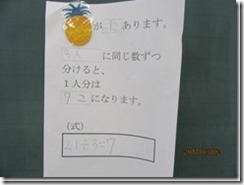 が21あります。
3人に同じ数ずつ
分けると、
1人分は
7こになります。
(式)
21÷3=7